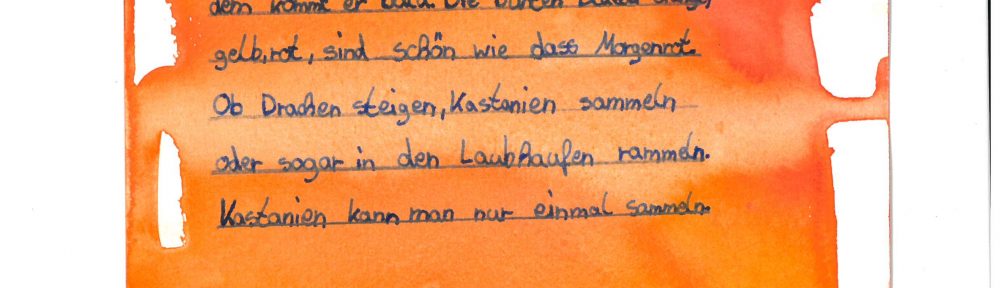 dem kommt er bald. Die bunten
gelb,rot, sind schön wie dass Morgenrot.
Ob Drachen steigen, Kastanien sammeln
oder sogar in den Laubhaufen rammeln.
Kastanien kann man nur einmal sammeln.